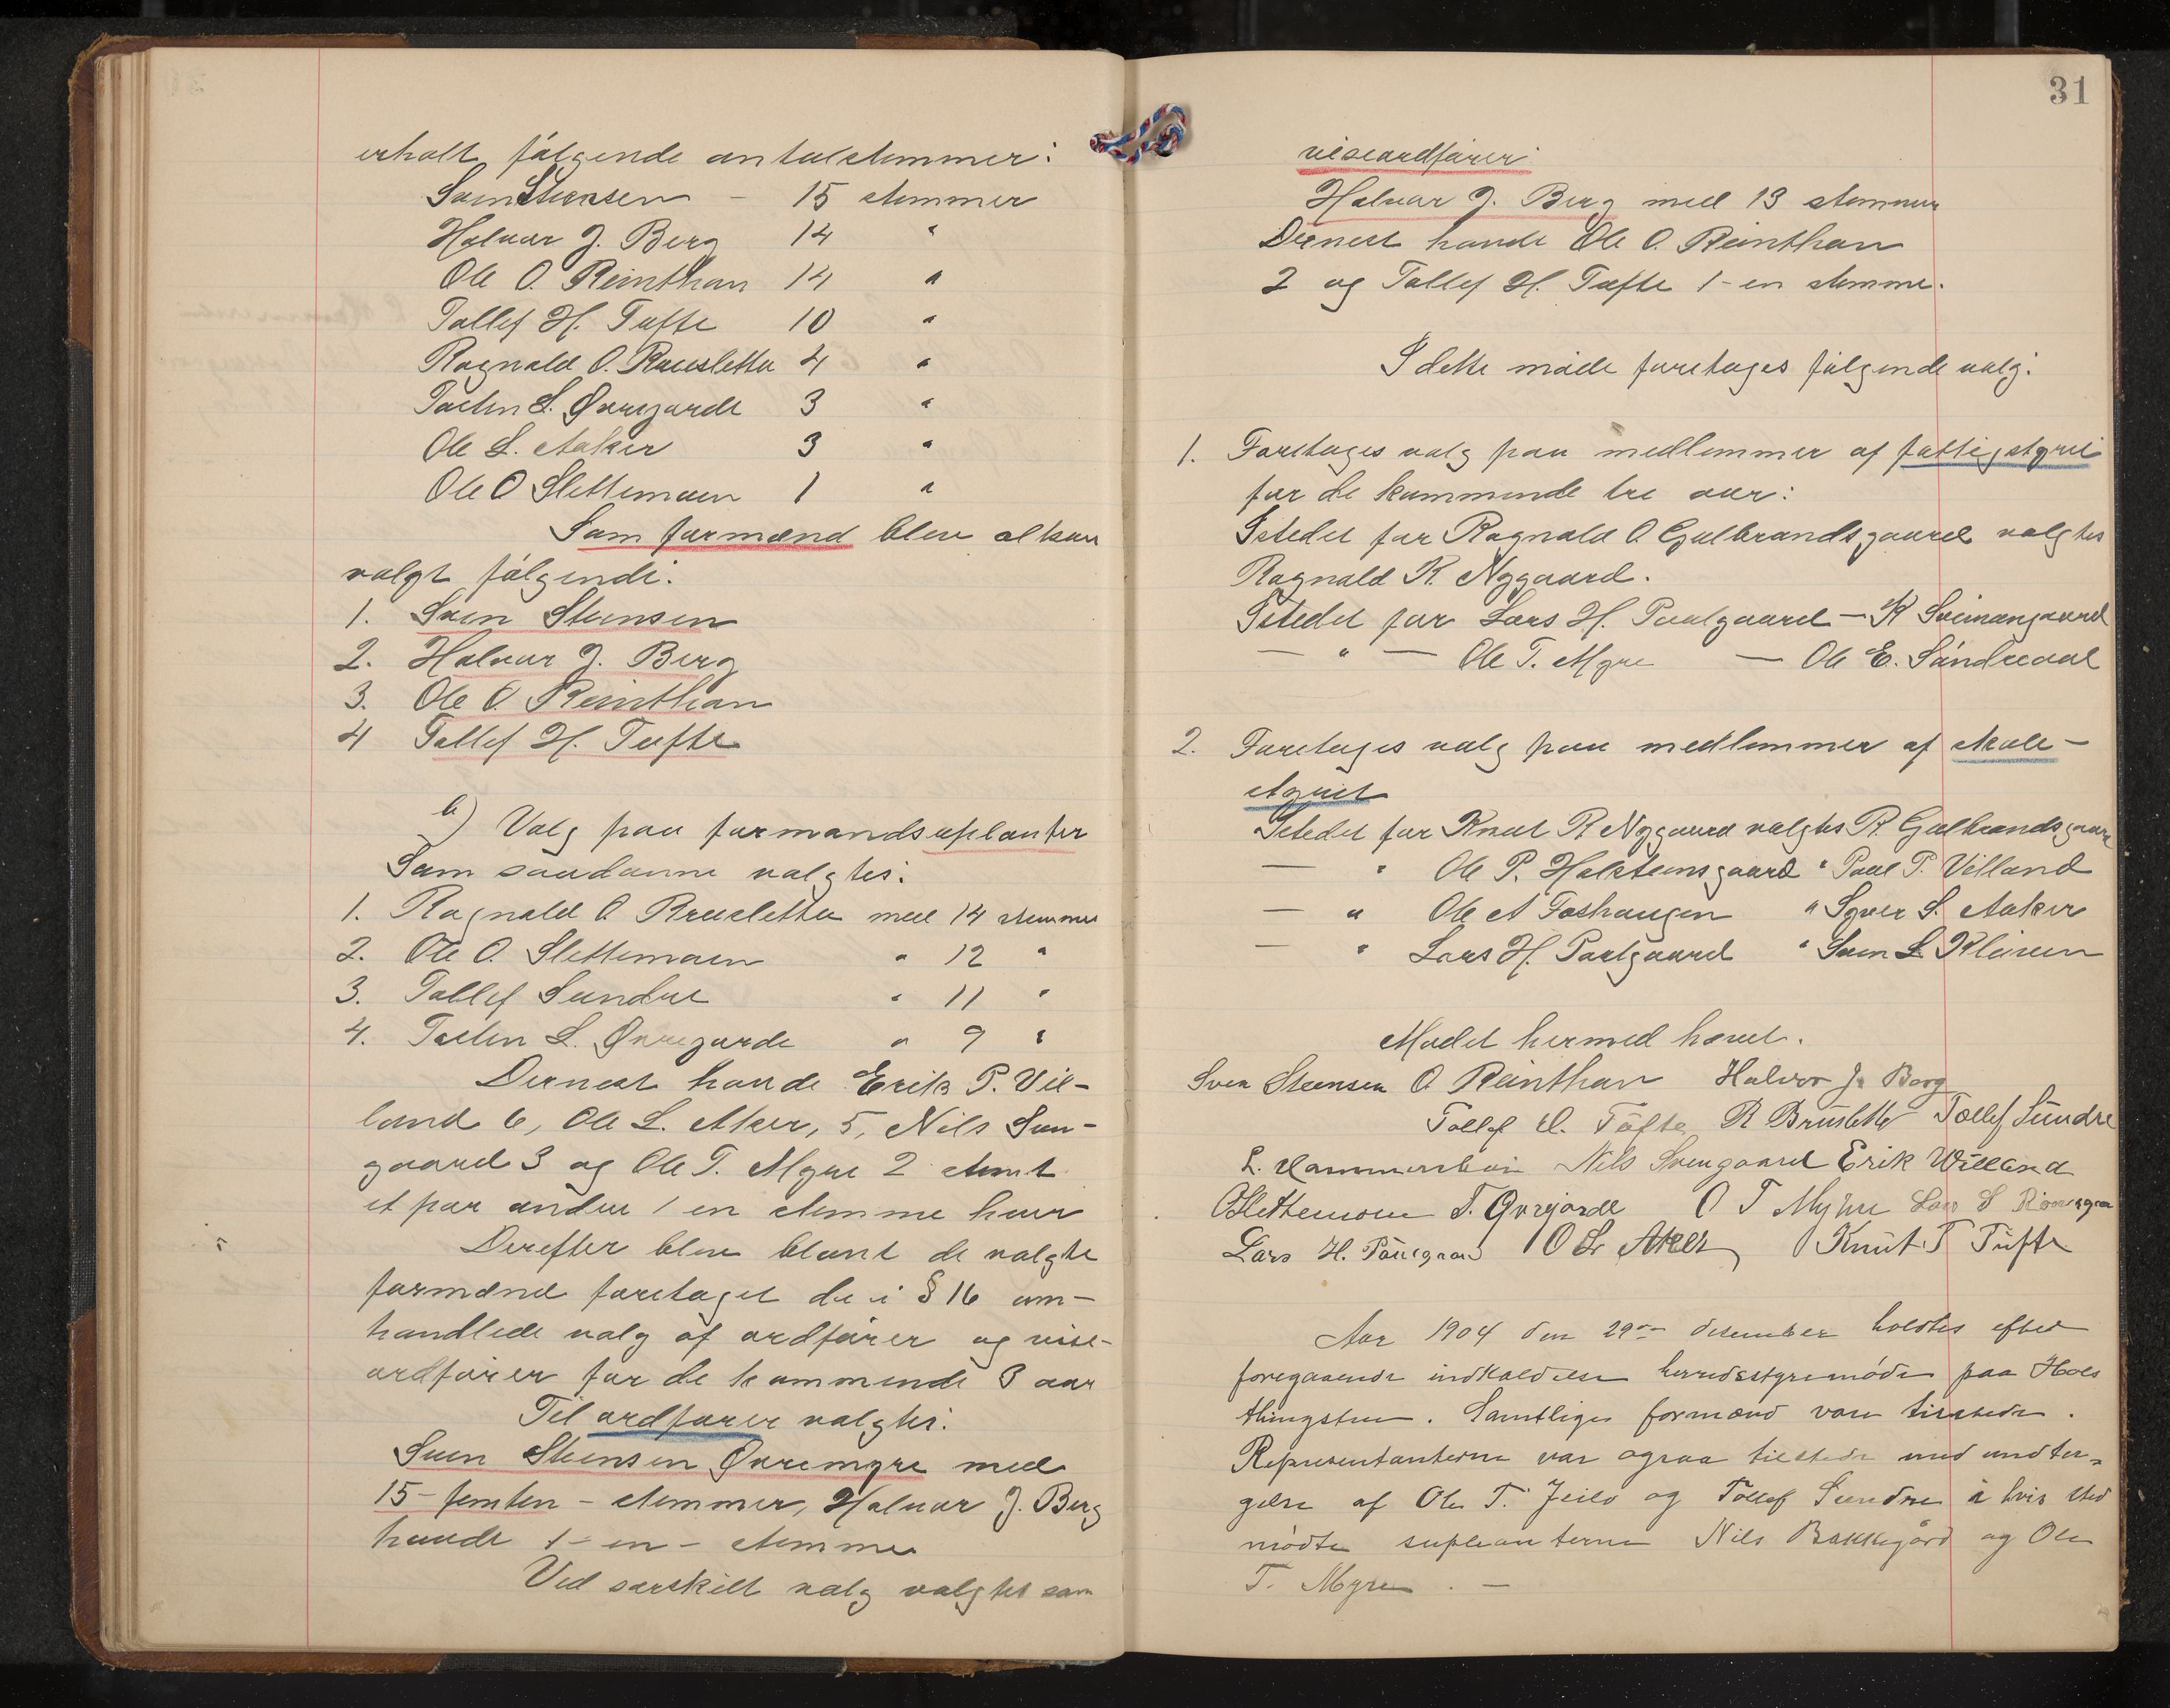 erholt følgende antal stemmer:
Sven Steensen - 15 stemmer
Halvar J. Berg 14 "
Ole O. Reinthon 14 "
Tollef H. Tufte 10 "
Ragnald O. Bruslettu 4 "
Tosten L. Øvregarde 3 "
Ole L. Aaker 3 "
Ole O Slettemoen 1 "
Som formænd blev altsaa
valgt følgende:
1. Sven Steensen
2. Halvar J. Berg
3. Ole O. Reinthon
4 Tollef H. Tufte
b) Valg paa formandsuplanter
Som saadanne valgtes:
1. Ragnald O Brusletta med 14 stemmer
2. Ole O. Slettemoen " 12 "
3. Tollef Sundre " 11 "
4. Tosten L. Øvregarde " 9 "
Dernest havde Erik P. Vil-
land 6, Ole L. Aker, 5, Nils Svn-
gaard 3 og Ole T. Myre 2 samt
et par andre 1 en stemme hver
Derefter blev blant de valgte
formænd foretaget de i § 16 om-
handlede valg af ordfører og vise-
ordfører for de kommende 3 aar
Til ordfører valgtes:
Sven Steensen Øvremyre med
15 - femten - stemmer, Halvar J. Berg
havde 1 - en - stemme
Ved særskilt valg valgtes som
31
viseordfører
Halvar J. Berg med 13 stemmer
Dernest havde Ole O. Reinthon
2 og Tollef H. Tufte 1 - en stemme.
I dette møde foretages følgende valg:
1. Foretages valg paa medlemmer af fattigstyret
for de kommende tre aar:
Istedet for Ragnald O Gulbrandsgaard valgtes
Ragnald K. Nygaard.
Istedet for Lars H. Paalgaard — K Sveinangaard
— " — Ole T. Myre — Ole E. Sándredal
2. Foretages valg paa medlemmer af skole-
styret
Istedet for Knut R Nygaard valgtes R. Gulbrandsgaard
— " Ole P. Halsteinsgaard " Paal P. Villand
— " Ole A Foshaugen " Syver S. Aaker
— " Lars H. Paalgaard " Sven L Kleiven
Mødet hermed hævet.
Sven Steensen O Reinthon Halvor J. Berg
Tollef H. Tufte R Bruslette Tollef Sundre
L. Hammersbøin Nils Svengaard Erik Willand
O Slettemoen T. Øvrgarde O T Myhre Lars S
Lars H. Paalgaard O L Aker Knut T Tufte
Aar 1904 den 29de desember holdtes efter
foregaaende indkaldelse herredsstyremøde paa Hols
thingstue. Samtlige formænd vare tilstede.
Representanterne var ogsaa tilstede med undta-
gelse af Ole T. Jeilo og Tollef Sundre i hvis sted
mødte supleanterne Nils Bakkegård og Ole
T. Myre. —